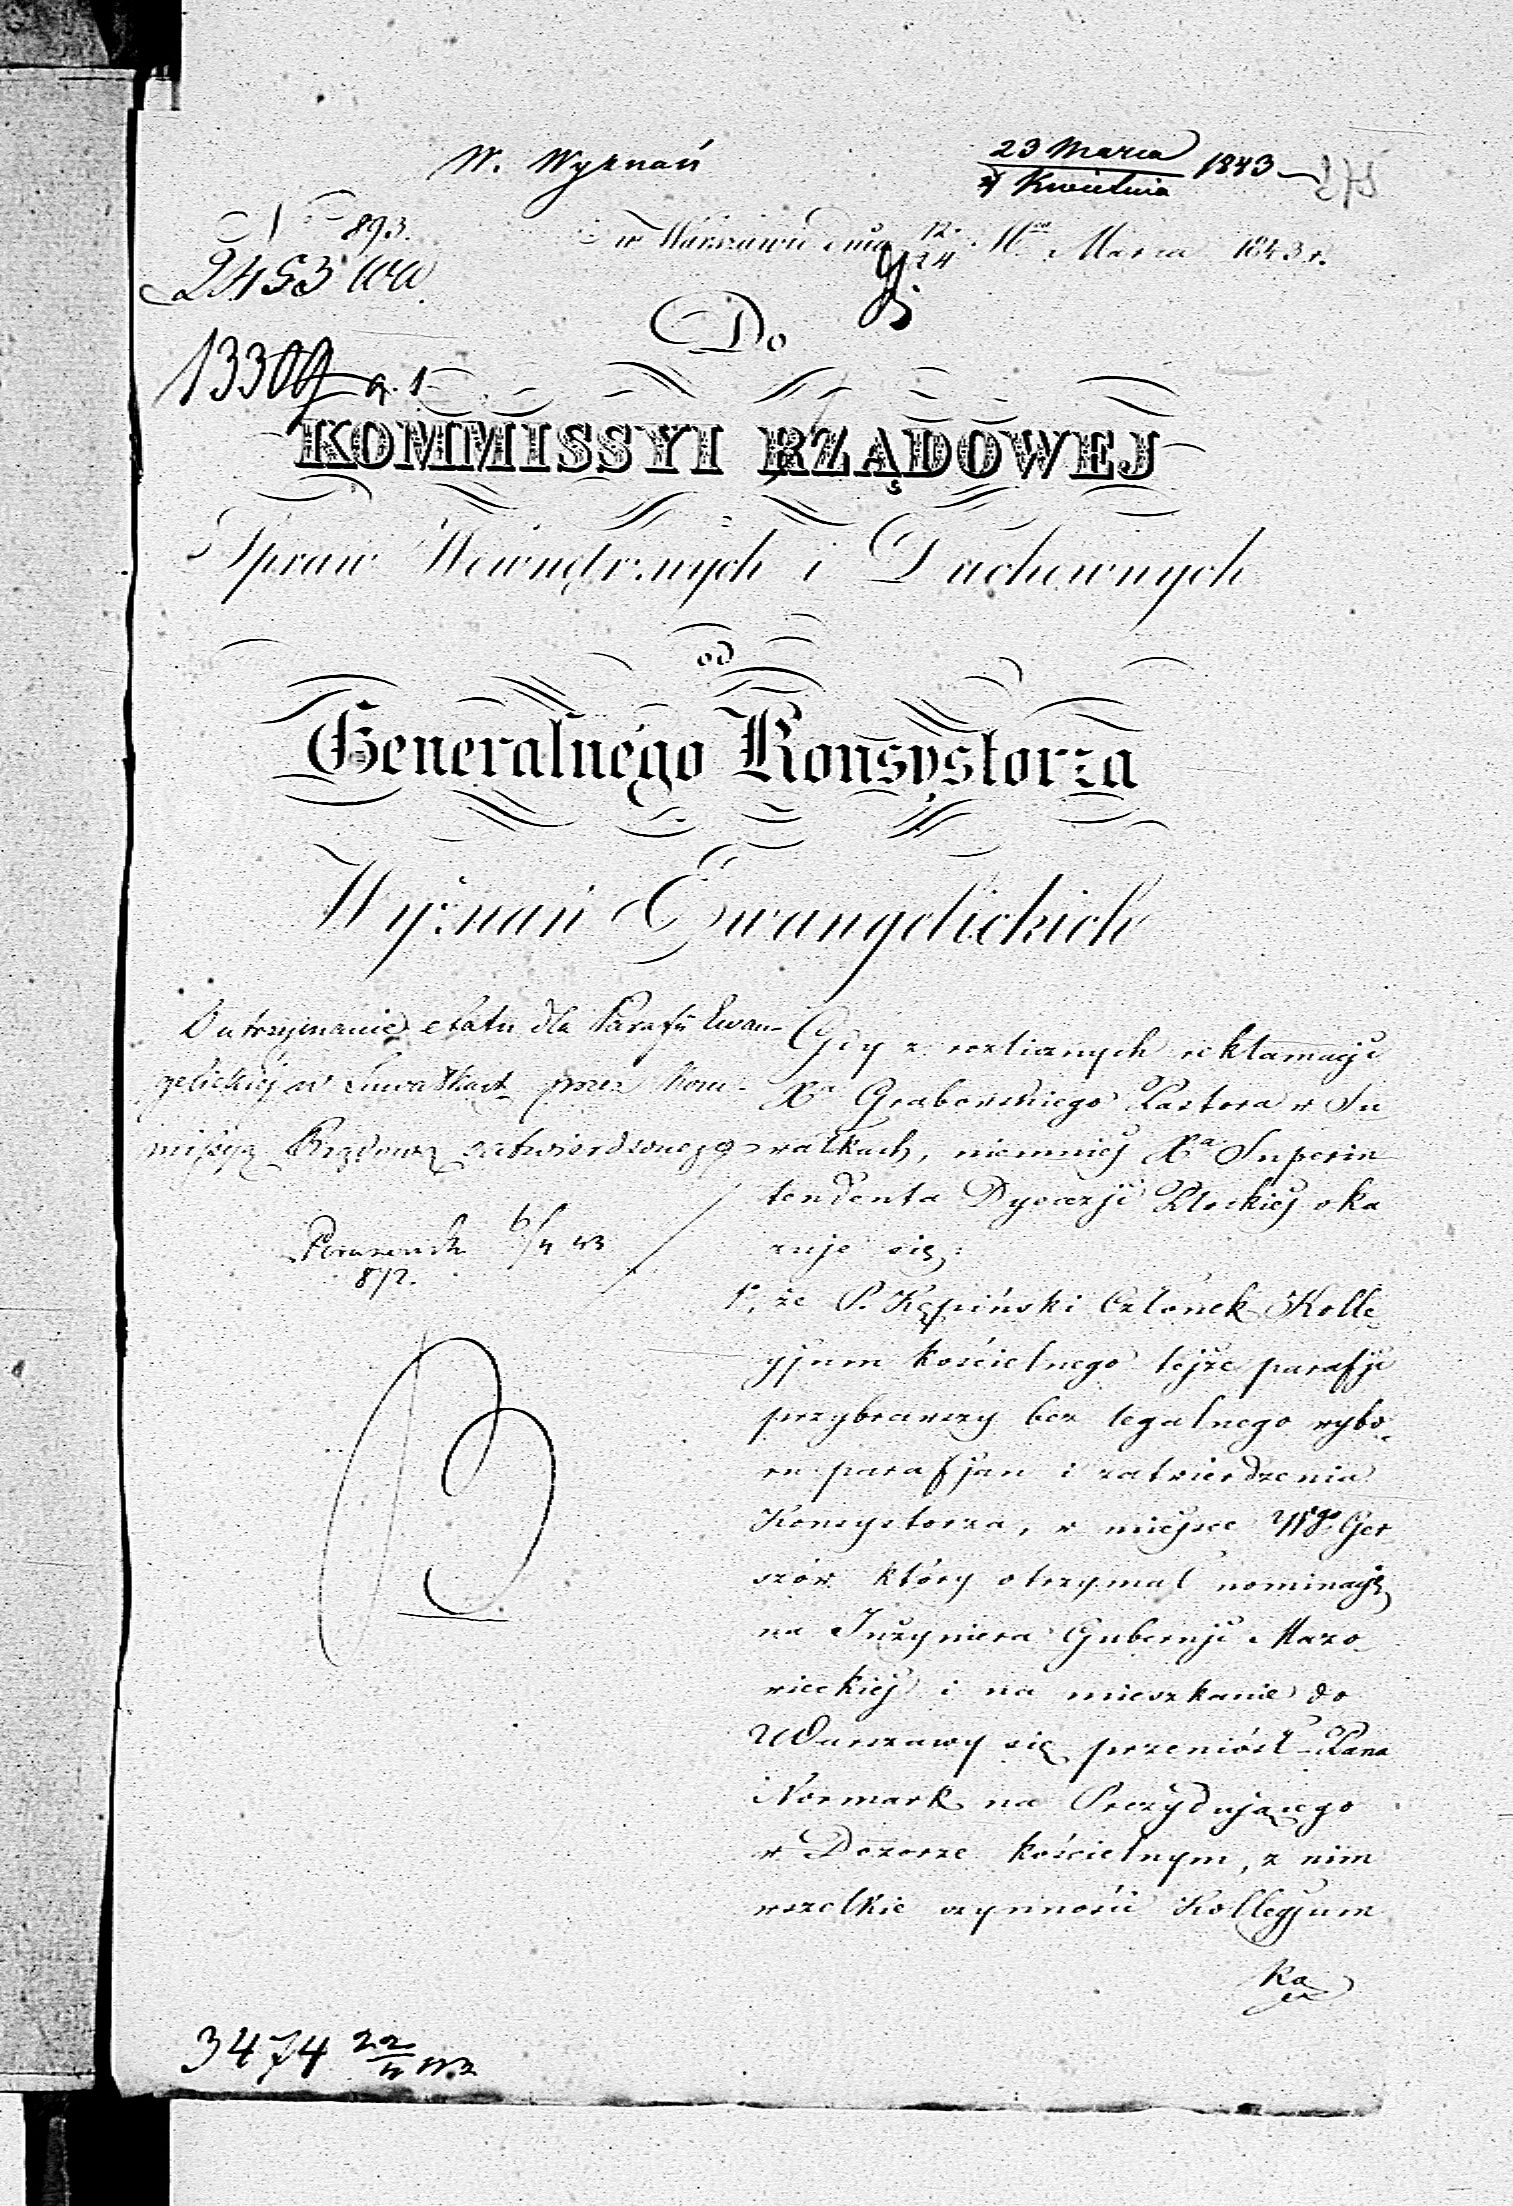 W. Wyznań
23 Marca 1843
4 Kwietnia
No 893.
w Warszawie dnia 12/24 Mca Marca 1843 r.
2453
13309
Do
KOMMISSYI RZĄDOWEJ
Spraw Wewnętrznych i Duchownych
od
Generalnego Konsystorza
Wyznań Ewangelickich
O utrzymanie etatu dla Parafii Ewan-
gelickiej w Suwałkach przez Kom-
missyą Rządową zatwierdzonego
872.
Gdy z rozlicznych reklamacyi
Xa Grabowskiego Pastora w Su
wałkach, niemniej Xa Superin
tendenta Dyecezji Płockiej oka
zuje się:
1o, że P. Kępiński Członek Kolle-
gjum kościelnego tejże parafji
przybrawszy bez legalnego wybo-
ru parafjan i zatwierdzenia
Konsystorza, w miejsce Wgo Ger
szów który otrzymał nominacyę
na Inżyniera Gubernji Mazo
wieckiej i na mieszkanie do
Warszawy się przeniósł - Pana
Normark na Prezydującego
w Dozorze kościelnym, z nim
wszelkie czynności Kollegjum
3474 22/4